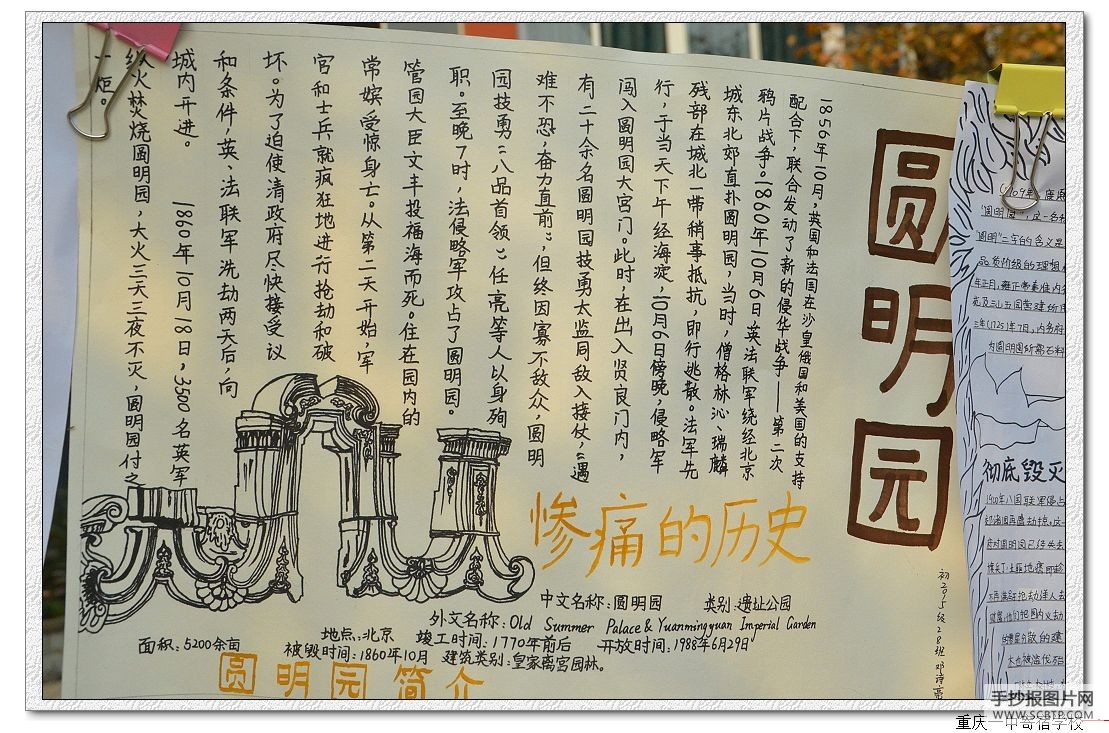 圆明园
1856年10月，英国和法国在沙皇俄国和美国的支持
配合下，联合发动了新的侵华战争——第二次
鸦片战争。1860年10月6日英法联军绕经北京
城东北郊直扑圆明园，当时，僧格林沁、瑞麟
残部在城北一带稍事抵抗，即行逃散。法军先
行，于当天下午经海淀，10月6日傍晚，侵略军
闯入圆明园大宫门。此时，在出入贤良门内，
有二十余名圆明园技勇太监同敌入接仗，“遇
难不恐，奋力直前”，但终因寡不敌众，圆明
园技勇“八品首领”任亮等人以身殉
职。至晚7时，法侵略军攻占了圆明园。
管园大臣文丰投福海而死。住在园内的
常嫔受惊身亡。从第二天开始，军
官和士兵就疯狂地进行抢劫和破
坏。为了迫使清政府尽快接受议
和条件，英、法联军洗劫两天后，向
城内开进。 1860年10月18日，3500名英军
纵火焚烧圆明园，大火三天三夜不灭，圆明园付之
一炬。
惨痛的历史
中文名称：圆明园 类别：遗址公园
外文名称：Old Summer Palace & Yuanmingyuan Imperial Garden
面积：5200余亩 地点：北京 竣工时间：1770年前后 开放时间：1988年6月29日
被毁时间：1860年10月 建筑类别：皇家离宫园林。
圆明园简介
初2015级28班
“圆明”二字的含义是
彻底毁灭
1900年八国联军侵占
手抄报图片网
WWW.SCBTP.COM
重庆一中寄宿学校